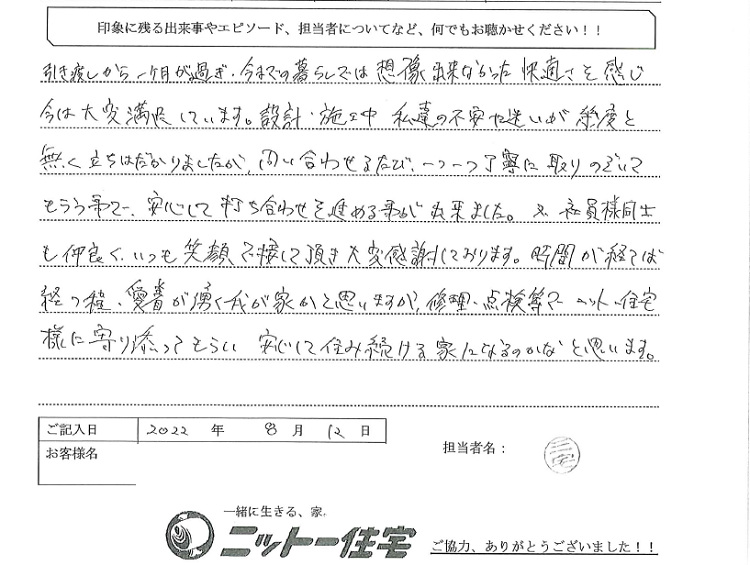 印象に残る出来事やエピソード、担当者についてなど、何でもお聴かせください！！
引き渡しから一ヶ月が過ぎ、今までの暮らしでは想像出来なかった快適さを感じ
今は大変満足しています。設計・施工中 私達の不安や迷いが幾度と
無く立ちはだかりましたが、問い合わせるたび、一つ一つ丁寧に取りのぞいて
もらう事で、安心して打ち合わせを進める事が出来ました。又 社員様同士
も仲良く、いつも笑顔で接して頂き大変感謝しております。時間が経てば
経つ程、愛着が湧く我が家かと思いますが、修理・点検等で ニットー住宅
様に寄り添ってもらい 安心して住み続ける家になるのかなと思います。
ご記入日 2022 年 8 月 12 日
お客様名
担当者名：
一緒に生きる、家。
ニットー住宅
ご協力、ありがとうございました！！